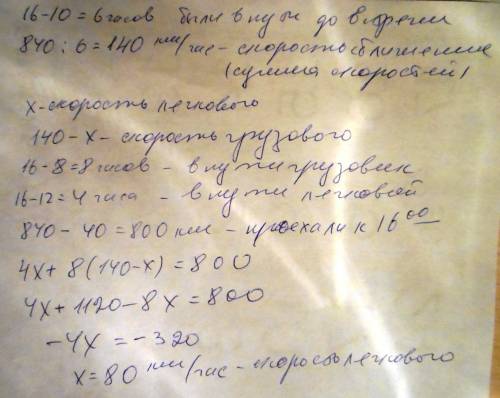 16-10=6 часов были в пути до встречи
840:6=140 км/час - скорость сближения
(сумма скоростей)
х-скорость легкового
140-х- скорость грузового
16-8=8 часов - в пути грузовик
16-12=4 часа - в пути легковой
840-40=800 км - проехали к 16⁰⁰
4х+8(140-х)=800
4х+1120-8х=800
-4х=-320
х=80 км/час - скорость легкового